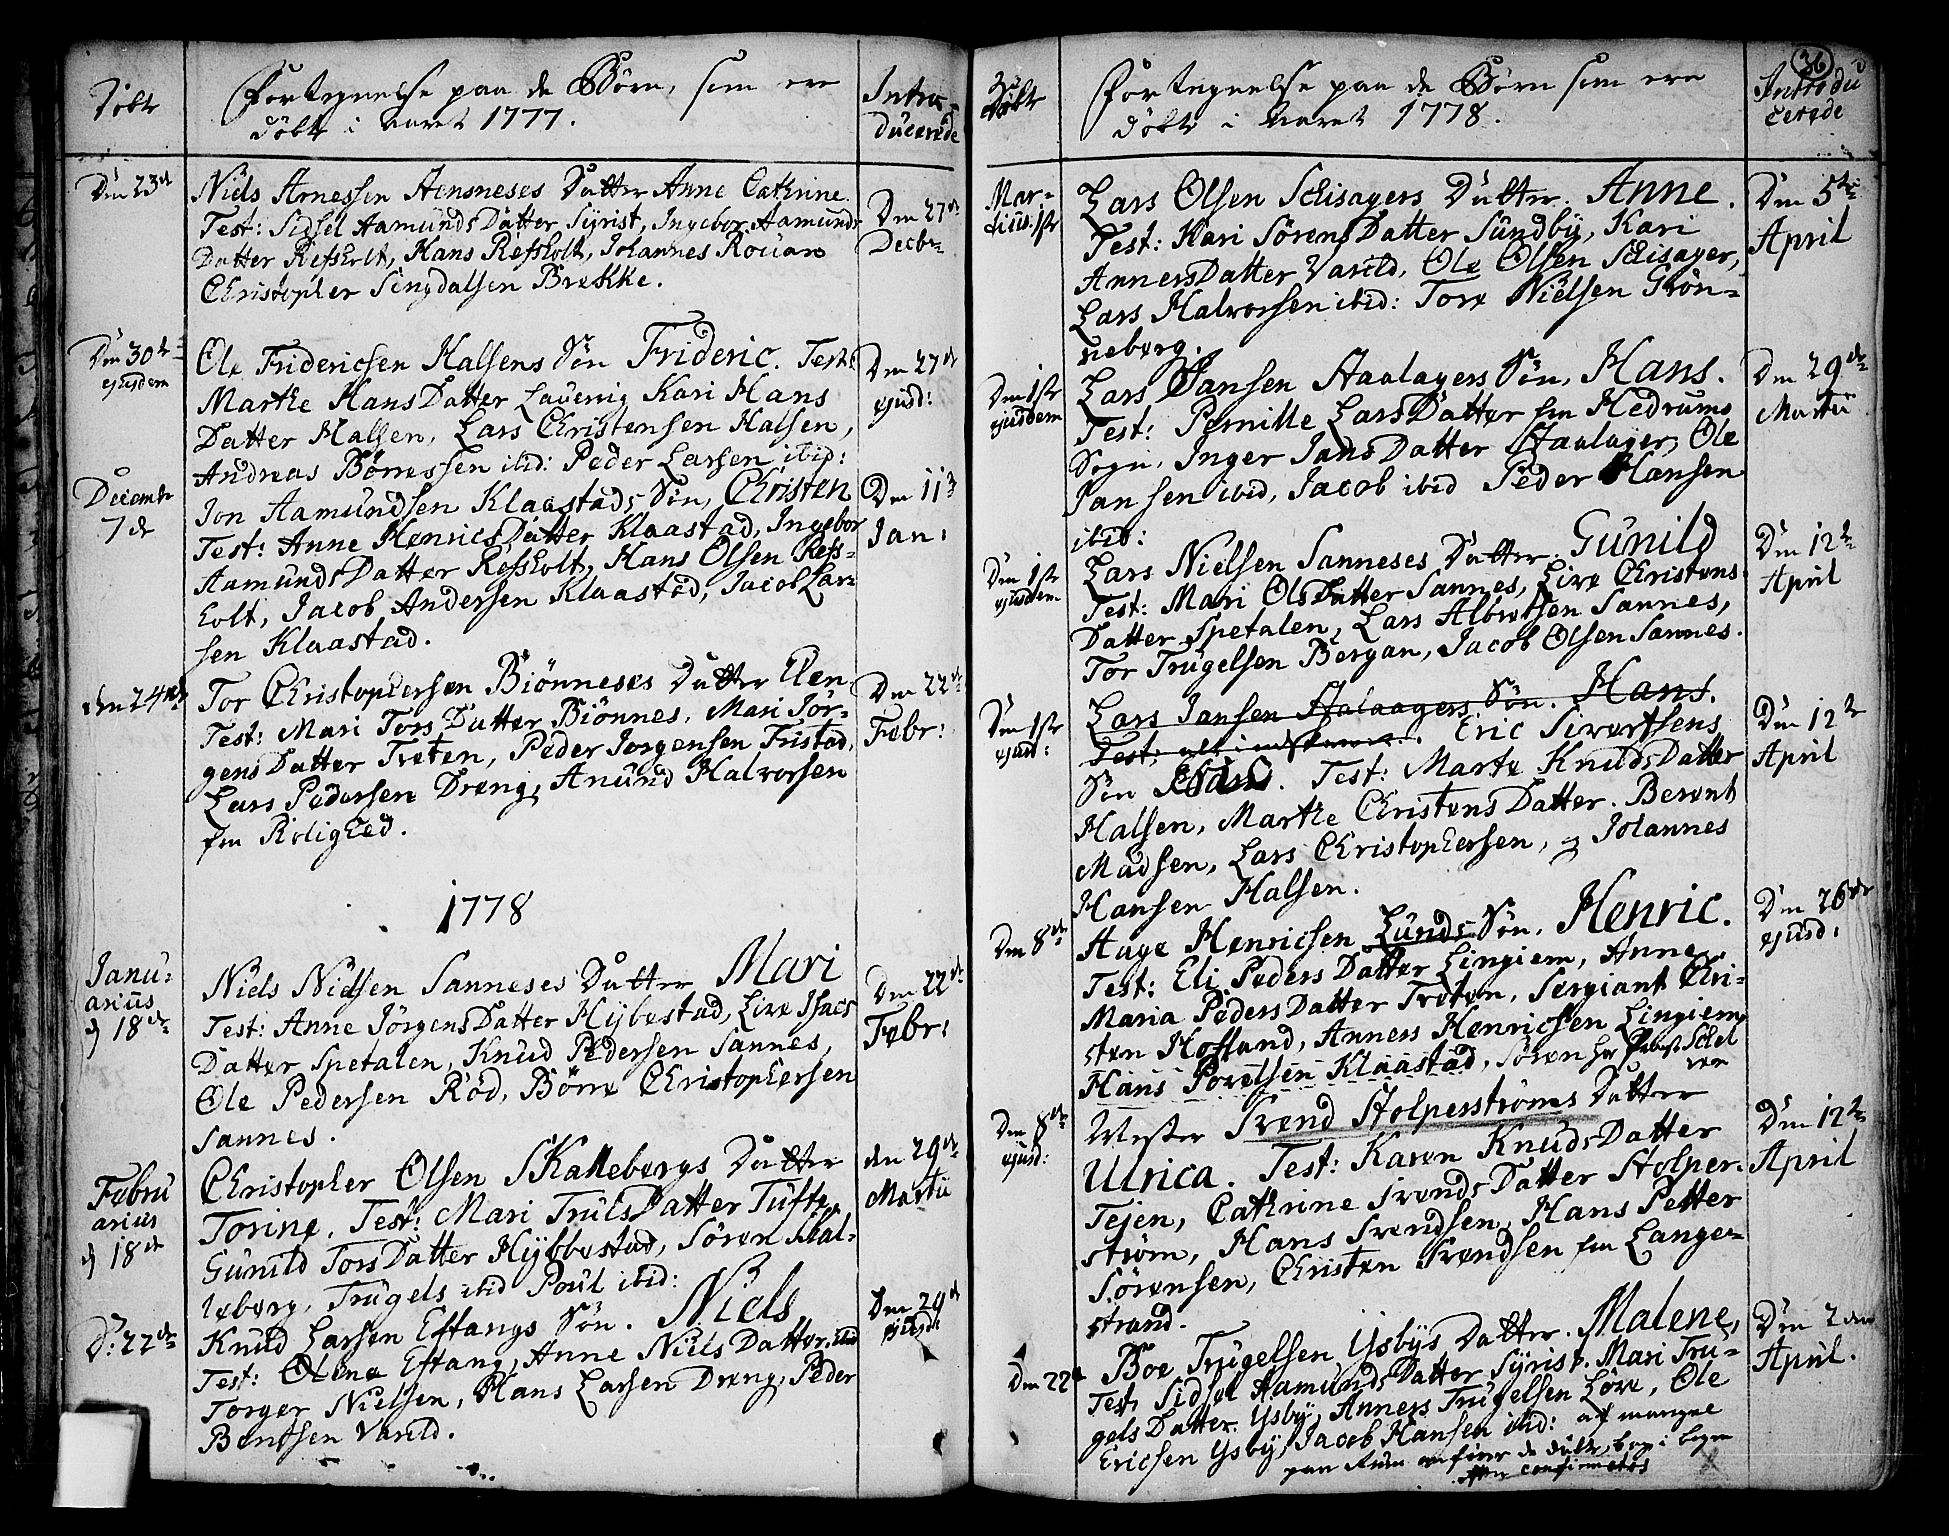 Döbte
Fortegnelse paa de Börn, som ere
döbte i Aaret 1777.
Intro-
ducerede
Den 23de
Niels Arnessen Aensneses Datter Anne Cathrine.
Test: Sidsel Aamunds Datter Syrist, Ingebor Aamunds
Datter Refsholt, Hans Refsholt, Johannes Rouan
Christopher Singdalsen Brekke.
Den 27de
Decbr
Den 30te
ejusdem
Ole Fridericsen Halsens Sön Frideric. Test:
Marthe Hans Datter Lauerig Kari Hans
Datter Halsen, Lars Christensen Halsen,
Andreas Börressen ibid: Peder Larsen ibid:
Den 27de
ejusd:
Decembr
7de
Jon Aamundsen Klaastads Sön, Christen
Test: Anne Henrics Datter Klaastad, Ingebor
Aamunds Datter Refsholt, Hans Olsen Refs-
holt, Jacob Andersen Klaastad, Jacob Lar-
sen Klaastad.
Den 11te
Jan:
den 24de
Tor Christophersen Biönneses Datter Elen
Test: Mari Tors Datter Biönnes, Mari Jör-
gens Datter Treten, Peder Jorgensen Fristad,
Lars Pedersen Dreng, Anund Halvorsen
fra Rolighed.
Den 22de
Febr:
1778
Janu-
arius
d 18de
Niels Nielsen Sanneses Datter Mari
Test: Anne Jörgens Datter Hybbestad, Live Isacs
Datter Spetalen, Knud Pedersen Sannes,
Ole Pedersen Röd, Börre Christophersen
Sannes.
Den 22de
Febr:
Febru
arius
d 18de
Christopher Olsen Skallebergs Datter
Torine. Test: Mari Truls Datter Tufte,
Gunild Tors Datter Hybbestad, Sören Skal-
leberg, Trugels ibid Poul ibid:
den 29de
Martii
D: 22de
Knud Larsen Eftangs Sön. Niels
Test: Olene Eftang, Anne Niels Datter ibid
Torger Nielsen, Hans Larsen Dreng, Peder
Bentsen Varild.
Den 29de
ejusd:
36
Döbte
Fortegnelse paa de Börn som ere
döbte i Aaret 1778.
Introdu
cerede
Mar-
tius 1ste
Lars Olsen Schisagers Datter. Anne.
Test: Kari Sörens Datter Sundby, Kari
Anners Datter Varild, Ole Olsen Schisager,
Lars Halvorsen ibid: Tore Nielsen Grön-
neberg.
Den 5te
April
Den 1ste
ejusdem
Lars Jansen Haalagers Sön, Hans.
Test: Pernille Lars Datter fra Hedrums
Sogn, Inger Jans Datter Haalager, Ole
Jansen ibid, Jacob ibid Peder Hansen
ibid:
Den 29de
Martii
Den 1ste
ejusdem
Lars Nielsen Sanneses Datter. Gunild
Test: Mari Ols Datter Sannes, Live Christens
Datter Spetalen, Lars Albretsen Sannes,
Tor Trugelsen Bergan, Jacob Olsen Sannes.
Den 12te
April
Den 1ste
ejusd:
Lars Jansen Haalagers Sön. Hans.
Test: Eric Sivertsens
Sön. Test: Marte Knuds Datter
Halsen, Marthe Christens Datter. Berent
Madsen, Lars Christophersen, og Johannes
Hansen Halsen.
Den 12te
April
Den 8de
Hage Henricsen Lunds Sön. Henric.
Test: Eli Peders Datter Lingiem, Anne
Maria Peders Datter Treten, Sergiant Chri-
sten Hofland, Anners Henricsen Lingiem,
Hans Povelsen Klaastad, Sören
Den 26de
ejusd:
Den 8de
ejusd:
Mester Svend Stolperströms Datter
Ulrica. Test: Karen Knuds Datter
Tejen, Cathrine Svends Datter Stolper-
ström, Hans Svendsen, Hans Petter
Sörensen, Christen Svendsen fra Lange-
strand.
Den 12te
April
Den 22de
Boe Trugelsen Ysbys Datter. Malene,
Test, Sidsel Aamunds Datter Syrist. Mari Tru-
gels Datter. Ysby, Anners Trugelsen Löve, Ole
Ericsen Ysby, Jacob Hansen ibid: af mangel
paa Rum anföres de Döbte bag i Bogen
efter confirmatos
Den 2den
April.